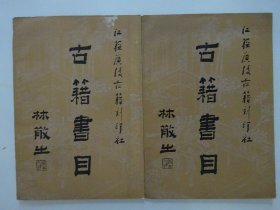 江苏广陵古籍刻印社
古籍書目
林散之
江苏广陵古籍刻印社
古籍書目
林散之